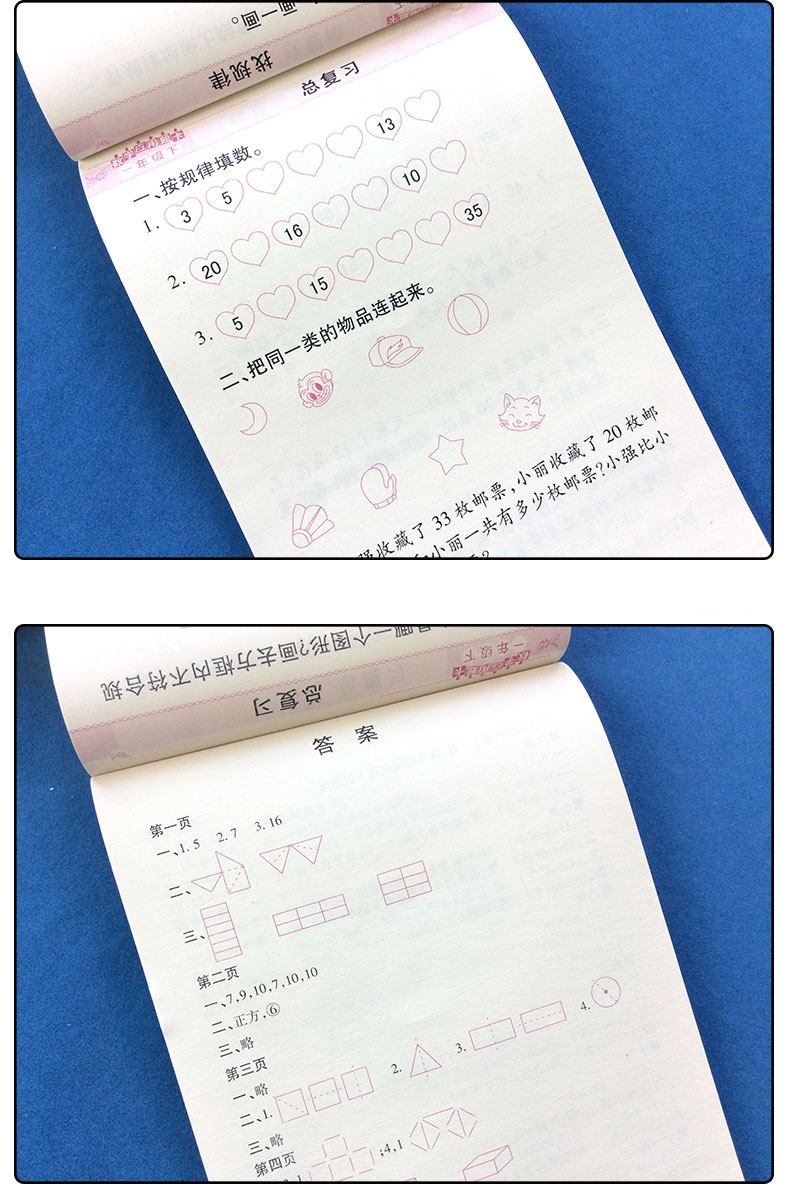 画一画。
找规律
总复习
一年级下
一、按规律填数。
1. 3 5 13
2. 20 16 10
3. 5 15 35
二、把同一类的物品连起来。
强收藏了 33 枚邮票,小丽收藏了 20 枚邮
小丽一共有多少枚邮票?小强比小
一年级下
一个图形?画去方框内不符合规
总复习
答 案
第一页
一、1. 5 2. 7 3. 16
二、
三、
第二页
一、7,9,10,7,10,10
二、正方,⑥
三、略
第三页
一、略
二、1. 2. 3. 4.
三、略
第四页
;4,1